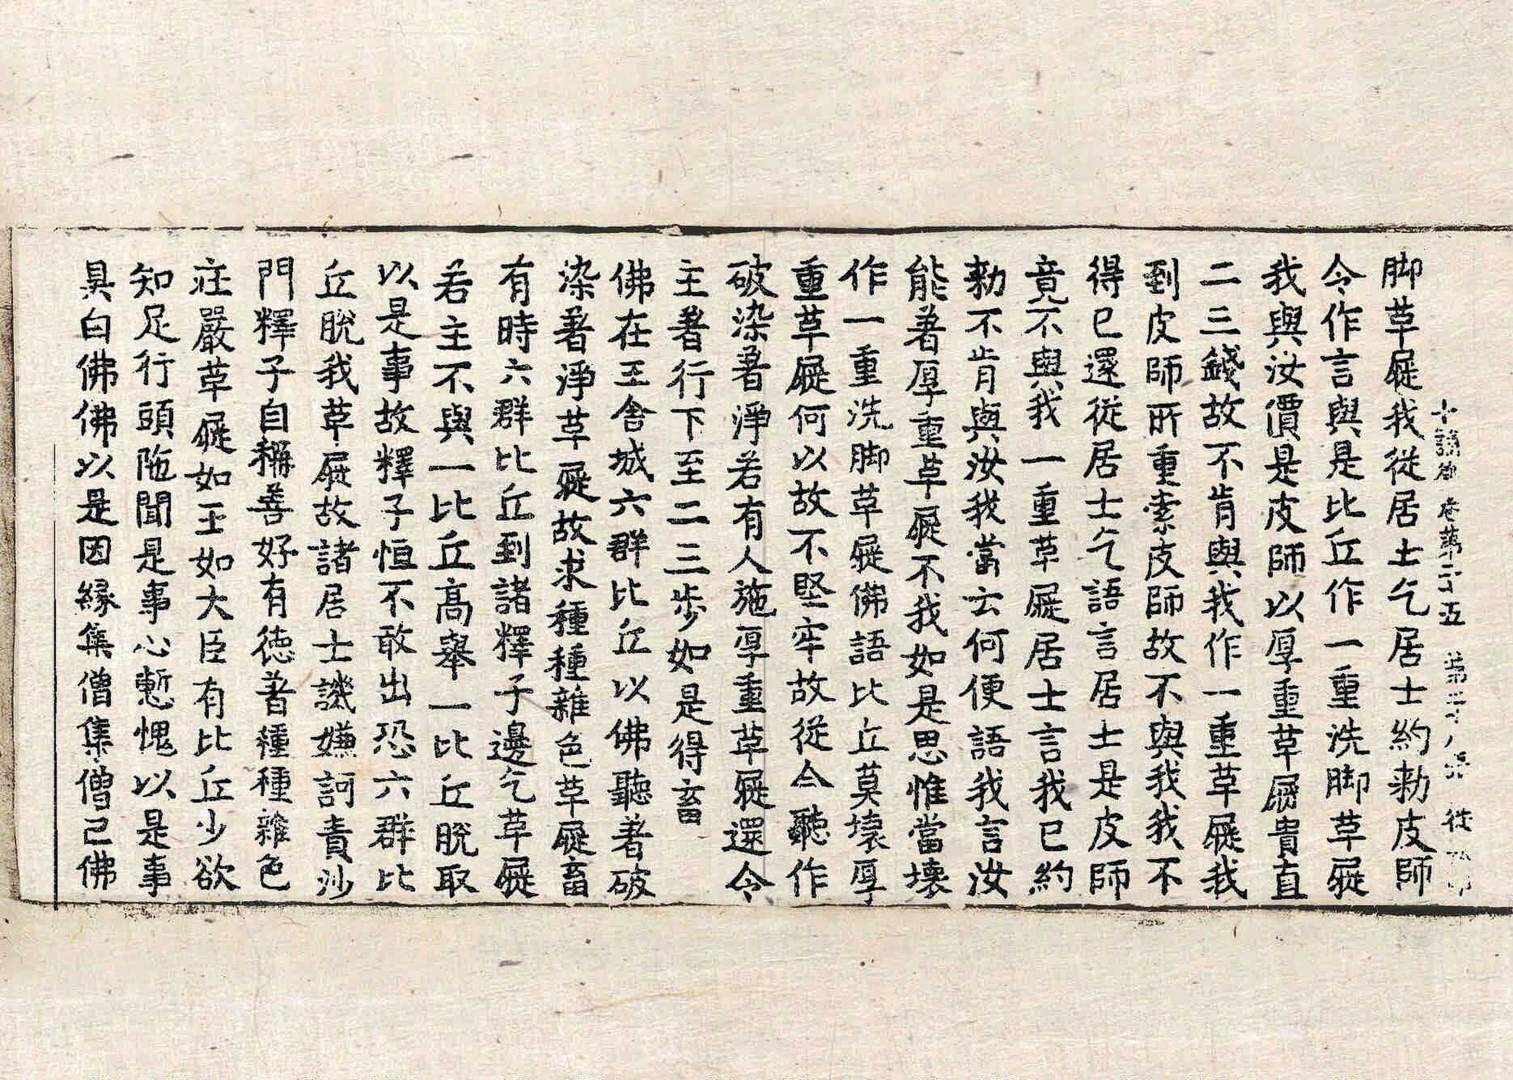 十誦律 卷第二十五 第二十八張 從
脚草屣我從居士乞居士約勑皮師
令作言與是比丘作一重洗脚草屣
我與汝價是皮師以厚重草屣貴直
二三錢故不肯與我作一重草屣我
到皮師所重索皮師故不與我我不
得已還從居士乞語言居士是皮師
竟不與我一重草屣居士言我已約
勑不肯與汝我當云何便語我言汝
能著厚重草屣不我如是思惟當壞
作一重洗脚草屣佛語比丘莫壞厚
重草屣何以故不堅牢故從今聽作
破染著淨若有人施厚重草屣還令
主著行下至二三步如是得畜
佛在王舍城六群比丘以佛聽著破
染著淨草屣故求種種雜色草屣畜
有時六群比丘到諸釋子邊乞草屣
若主不與一比丘高舉一比丘脫取
以是事故釋子恒不敢出恐六群比
丘脫我草屣故諸居士譏嫌訶責沙
門釋子自稱善好有德著種種雜色
莊嚴草屣如王如大臣有比丘少欲
知足行頭陁聞是事心慙愧以是事
具白佛佛以是因緣集僧集僧已佛